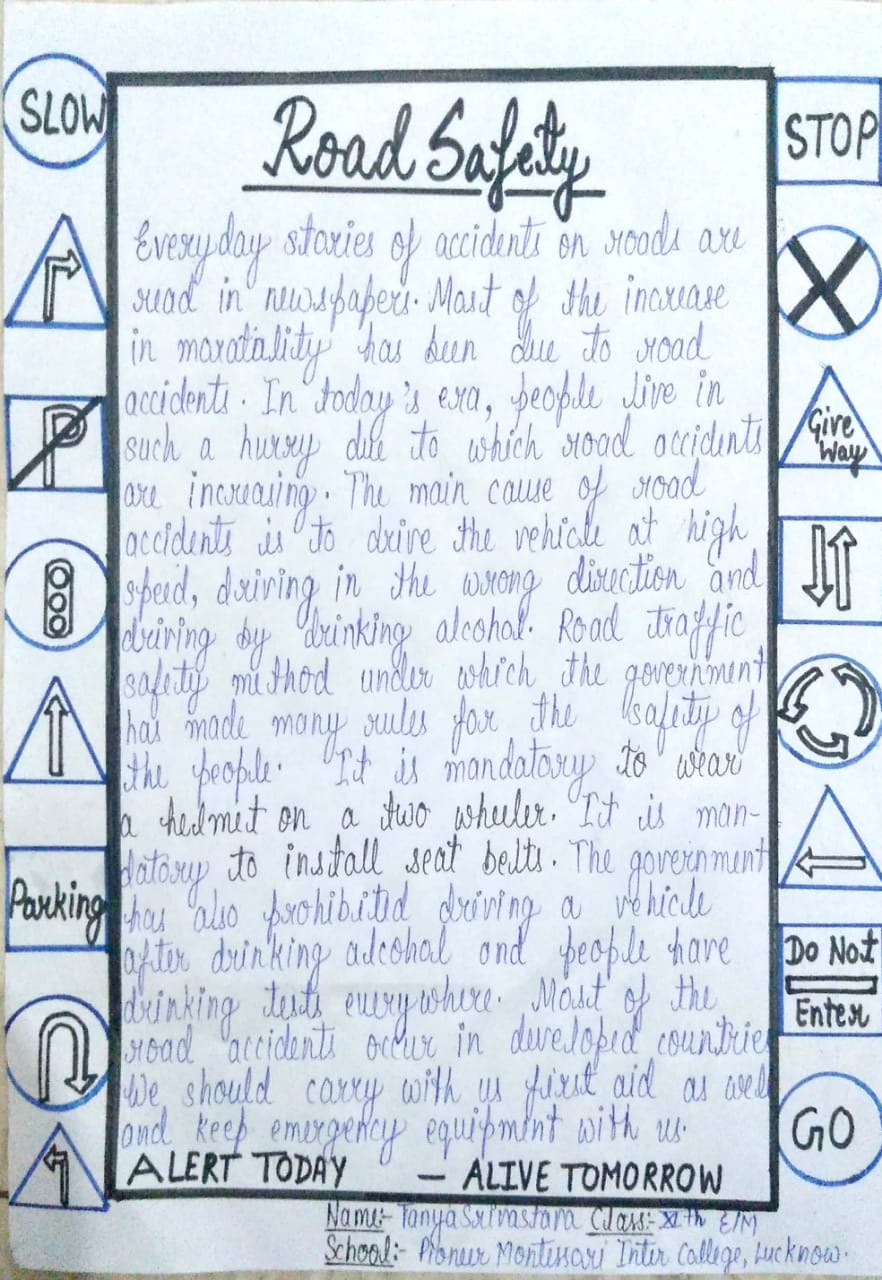 SLOW
STOP
Road Safety
Everyday stories of accidents on roads are
read in newspapers. Most of the increase
in moratality has been due to road
accidents. In today's era, people live in
such a hurry due to which road accidents
are increasing. The main cause of road
accidents is to drive the vehicle at high
speed, driving in the wrong direction and
driving by drinking alcohol. Road traffic
safety method under which the government
has made many rules for the safety of
the people. It is mandatory to wear
a helmet on a two wheeler. It is man-
datory to install seat belts. The government
has also prohibited driving a vehicle
after drinking alcohol and people have
drinking tests everywhere. Most of the
road accidents occur in developed countries
We should carry with us first aid as well
and keep emergency equipment with us.
ALERT TODAY — ALIVE TOMORROW
P
Parking
Give
Way
Do Not
Enter
GO
Name:- Tanya Srivastava Class:- XIth E/M
School:- Pioneer Montessari Inter College, Lucknow.